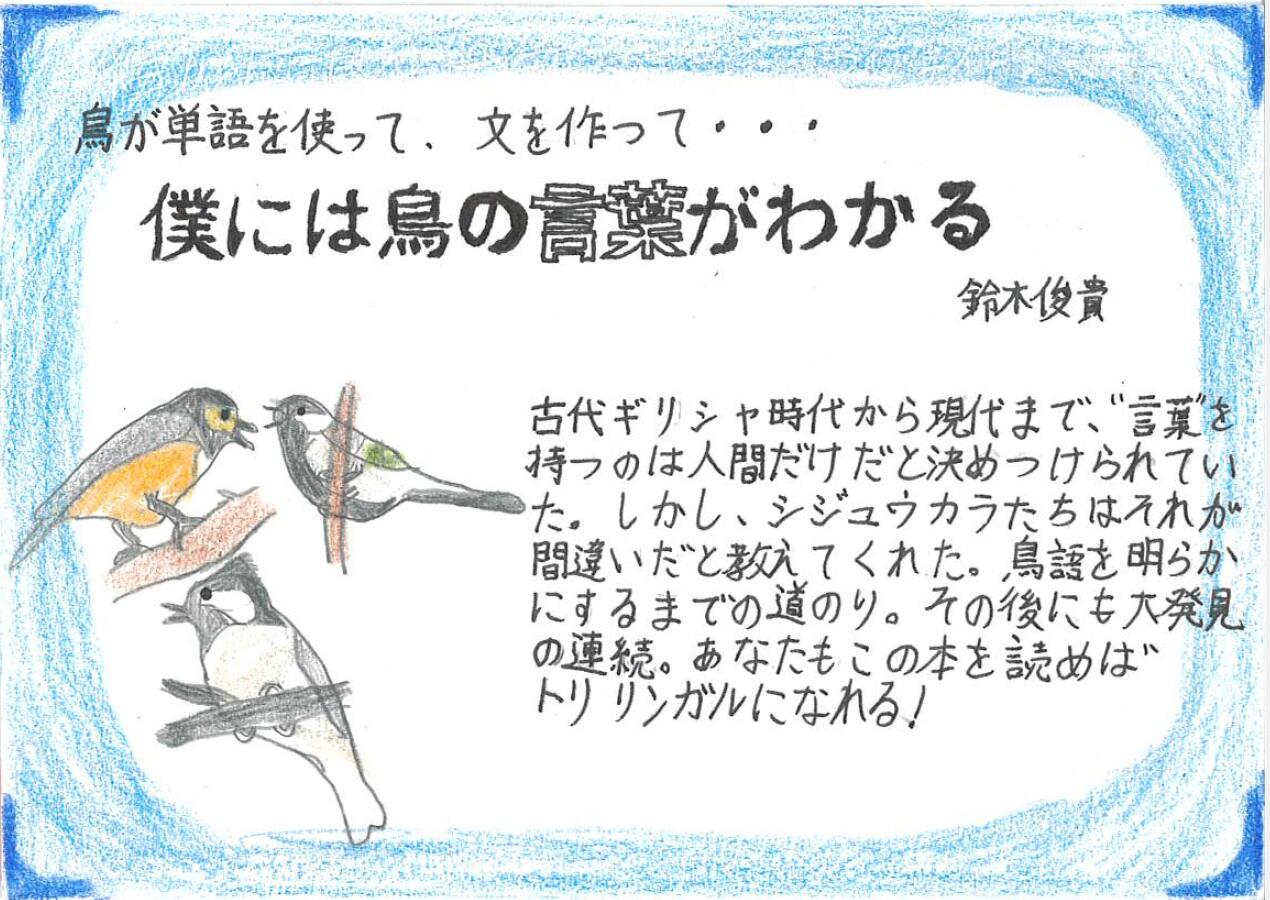 鳥が単語を使って、文を作って・・・
僕には鳥の言葉がわかる
鈴木俊貴
古代ギリシャ時代から現代まで、"言葉"を
持つのは人間だけだと決めつけられてい
た。しかし、シジュウカラたちはそれが
間違いだと教えてくれた。鳥語を明らか
にするまでの道のり。その後にも大発見
の連続。あなたもこの本を読めば
トリリンガルになれる!